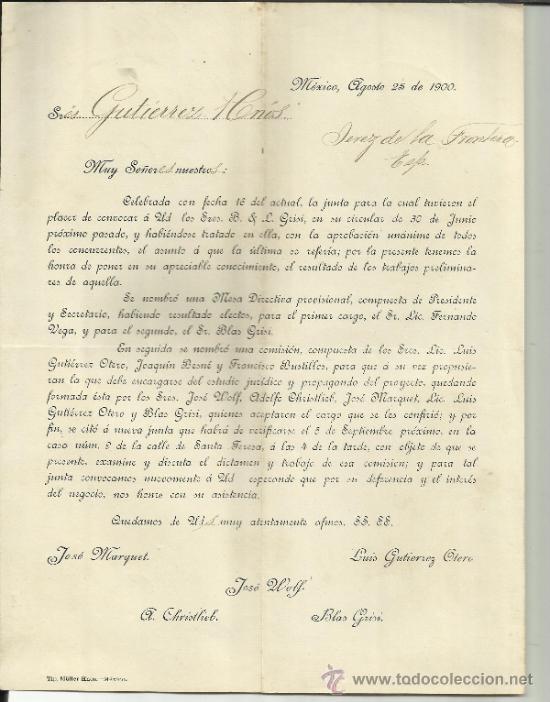 México, Agosto 25 de 1900.
Sres Gutierrez Hnos
Jerez de la Frontera
Esp.
Muy Señores nuestros:
Celebrada con fecha 16 del actual, la junta para la cual tuvieron el
placer de convocar á Ud los Sres. B. & L. Grisi, en su circular de 30 de Junio
próximo pasado, y habiéndose tratado en ella, con la aprobación unánime de todos
los concurrentes, el asunto á que la última se refería; por la presente tenemos la
honra de poner en su apreciable conocimiento, el resultado de los trabajos prelimina-
res de aquella.
Se nombró una Mesa Directiva provisional, compuesta de Presidente
y Secretario, habiendo resultado electos, para el primer cargo, el Sr. Lic. Fernando
Vega, y para el segundo, el Sr. Blas Grisi.
En seguida se nombró una comisión, compuesta de los Sres. Lic. Luis
Gutiérrez Otero, Joaquín Besné y Francisco Bustillos, para que á su vez propusie-
ran la que debe encargarse del estudio jurídico y propaganda del proyecto, quedando
formada ésta por los Sres. José Wolf, Adolfo Christlieb, José Marquet, Lic. Luis
Gutiérrez Otero y Blas Grisi, quienes aceptaron el cargo que se les confirió; y por
fin, se citó á nueva junta que habrá de verificarse el 5 de Septiembre próximo, en la
casa núm. 9 de la calle de Santa Teresa, á las 4 de la tarde, con objeto de que se
presente, examine y discuta el dictamen y trabajo de esa comisión; y para tal
junta convocamos nuevamente á Ud esperando que por su deferencia y el interés
del negocio, nos honre con su asistencia.
Quedamos de Uds muy atentamente afmos. SS. SS.
José Marquet.
Luis Gutierrez Otero
José Wolf.
A. Christlieb.
Blas Grisi.
Tip. Müller Hnos.—México.
todocoleccion.net